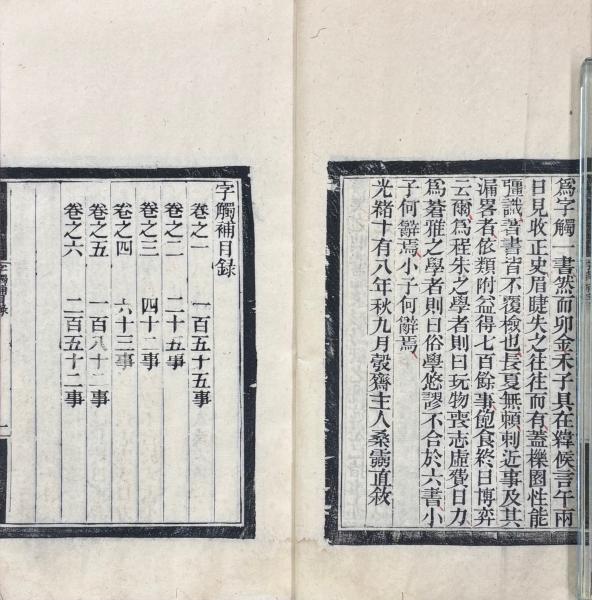 為字觸一書然而卯金禾子具在緯候言午兩
日見收正史眉睫失之往往而有蓋櫟園性能
彊識著書皆不覆檢也長夏無賴刺近事及其
漏畧者依類附益得七百餘事飽食終日博弈
云爾為程朱之學者則曰玩物喪志虛費日力
為蒼雅之學者則曰俗學悠謬不合於六書小
子何辭焉小子何辭焉
光緒十有八年秋九月㲄齋主人桑霱直敘
字觸補目録
卷之一 一百五十五事
卷之二 二十五事
卷之三 四十二事
卷之四 六十三事
卷之五 一百八十二事
卷之六 二百五十二事
字觸補目錄
一